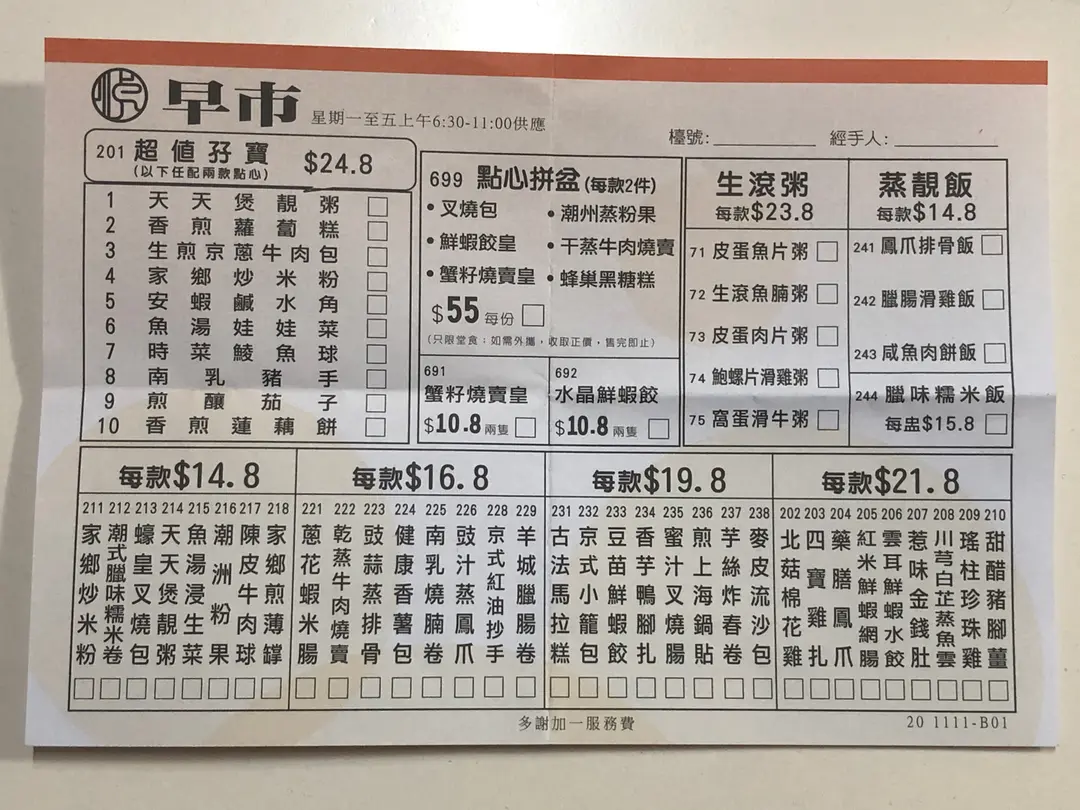 早市 星期一至五上午6:30-11:00供應
檯號: 經手人:
201 超值孖寶 $24.8
(以下任配兩款點心)
1 天天煲靚粥
2 香煎蘿蔔糕
3 生煎京蔥牛肉包
4 家鄉炒米粉
5 安蝦鹹水角
6 魚湯娃娃菜
7 時菜鯪魚球
8 南乳豬手
9 煎釀茄子
10 香煎蓮藕餅
699 點心拼盆(每款2件)
•叉燒包
•鮮蝦餃皇
•蟹籽燒賣皇
•潮州蒸粉果
•干蒸牛肉燒賣
•蜂巢黑糖糕
$55每份
(只限堂食;如需外攜,收取正價,售完即止)
691
蟹籽燒賣皇
$10.8兩隻
692
水晶鮮蝦餃
$10.8兩隻
生滾粥
每款$23.8
71 皮蛋魚片粥
72 生滾魚腩粥
73 皮蛋肉片粥
74 鮑螺片滑雞粥
75 窩蛋滑牛粥
蒸靚飯
每款$14.8
241 鳳爪排骨飯
242 臘腸滑雞飯
243 咸魚肉餅飯
244 臘味糯米飯
每盅$15.8
每款$14.8
211 家鄉炒米粉
212 潮式臘味糯米卷
213 蠔皇叉燒包
214 天天煲靚粥
215 魚湯浸生菜
216 潮洲粉果
217 陳皮牛肉球
218 家鄉煎薄罉
每款$16.8
221 蔥花蝦米腸
222 乾蒸牛肉燒賣
223 豉蒜蒸排骨
224 健康香薯包
225 南乳燒腩卷
226 豉汁蒸鳳爪
228 京式紅油抄手
229 羊城臘腸卷
每款$19.8
231 古法馬拉糕
232 京式小籠包
233 豆苗鮮蝦餃
234 香芋鴨腳扎
235 蜜汁叉燒腸
236 煎上海鍋貼
237 芋絲炸春卷
238 麥皮流沙包
每款$21.8
202 北菇棉花雞
203 四寶雞扎
204 藥膳鳳爪
205 紅米鮮蝦網腸
206 雲耳鮮蝦水餃
207 惹味金錢肚
208 川芎白芷蒸魚雲
209 瑤柱珍珠雞
210 甜醋豬腳薑
多謝加一服務費
20 1111-B01